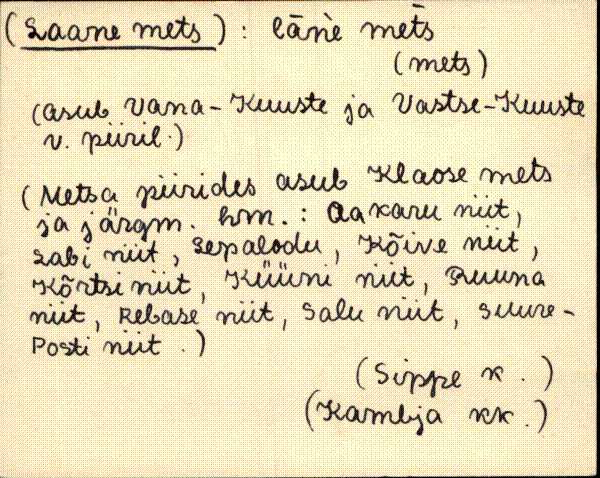 (Laane mets) : lāǹe met̄s
(mets)
(asub Vana-Kuuste ja Vastse-Kuuste
v. piiril.)
(Metsa piirides asub Klaose mets
ja järgm. hm. : Aakaru niit,
Labi niit, Sepaloodu, Kõive niit,
Kõrtsi niit, Küüni niit, Ruuna
niit, Rebase niit, Salu niit, Suure-
Posti niit.)
(Sippe k.)
(Kambja kk.)